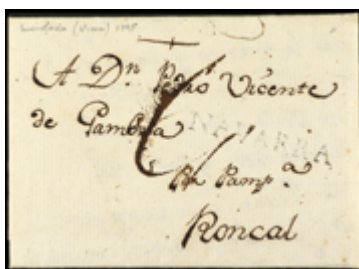 A Dn. Pedro Vicente
de Gambra
NAVARRA
Pr. Pampa.
Roncal